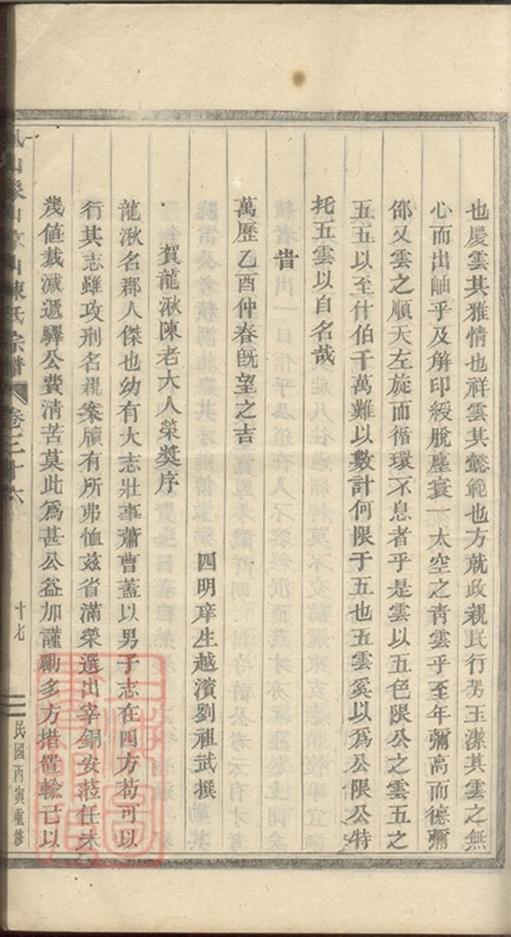 也慶雲其雅情也祥雲其懿範也方就政親民行芳玉潔其雲之無
心而出岫乎及觧印綬脫塵寰一太空之靑雲乎至年彌高而德彌
邵又雲之順天左旋而循環不息者乎是雲以五色限公之雲五之
五五以至什伯千萬難以數計何限于五也五雲奚以爲公限公特
托五雲以自名哉
旹
萬歷乙酉仲春旣望之吉
四明庠生越濱劉祖武撰
賀龍湫陳老大人榮奬序
龍湫名郡人傑也幼有大志壯事蕭曹蓋以男子志在四方苟可以
行其志雖攻刑名親案牘有所弗恤茲省滿榮選出宰銅安蒞任未
幾値裁減遞驛公費淸苦莫此爲甚公益加謹勵多方措置輸己以
山陳氏宗譜
卷三十六
十七
民國丙寅重修